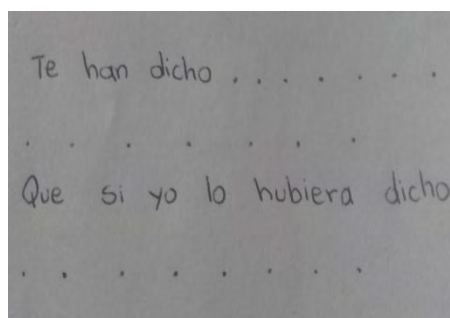 Te han dicho . . . . . . .
. . . . . . .
Que si yo lo hubiera dicho
. . . . . . . .